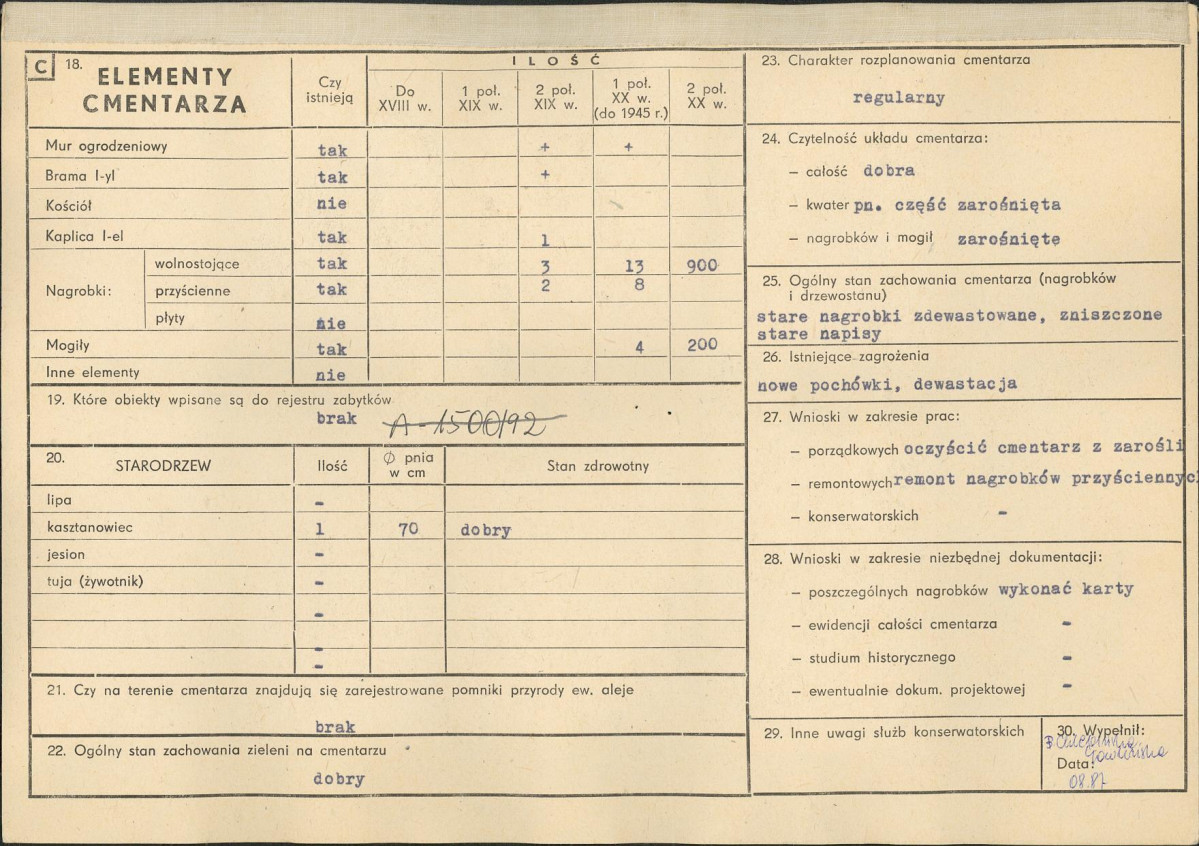 C 18. ELEMENTY CMENTARZA
Czy istnieją
ILOŚĆ
Do XVIII w.
1 poł. XIX w.
2 poł. XIX w.
1 poł. XX w. (do 1945 r.)
2 poł. XX w.
Mur ogrodzeniowy tak + +
Brama I-yl tak +
Kościół nie
Kaplica I-el tak 1
Nagrobki:
wolnostojące tak 3 13 900
przyścienne tak 2 8
płyty nie
Mogiły tak 4 200
Inne elementy nie
19. Które obiekty wpisane są do rejestru zabytków
brak A-1500/92
20. STARODRZEW Ilość Ø pnia w cm Stan zdrowotny
lipa -
kasztanowiec 1 70 dobry
jesion -
tuja (żywotnik) -
-
-
-
21. Czy na terenie cmentarza znajdują się zarejestrowane pomniki przyrody ew. aleje
brak
22. Ogólny stan zachowania zieleni na cmentarzu
dobry
23. Charakter rozplanowania cmentarza
regularny
24. Czytelność układu cmentarza:
– całość dobra
– kwater pn. część zarośnięta
– nagrobków i mogił zarośnięte
25. Ogólny stan zachowania cmentarza (nagrobków
i drzewostanu)
stare nagrobki zdewastowane, zniszczone
stare napisy
26. Istniejące zagrożenia
nowe pochówki, dewastacja
27. Wnioski w zakresie prac:
– porządkowych oczyścić cmentarz z zarośli
– remontowych remont nagrobków przyściennyc
– konserwatorskich -
28. Wnioski w zakresie niezbędnej dokumentacji:
– poszczególnych nagrobków wykonać karty
– ewidencji całości cmentarza -
– studium historycznego -
– ewentualnie dokum. projektowej -
29. Inne uwagi służb konserwatorskich
30. Wypełnił:
Data:
08.87